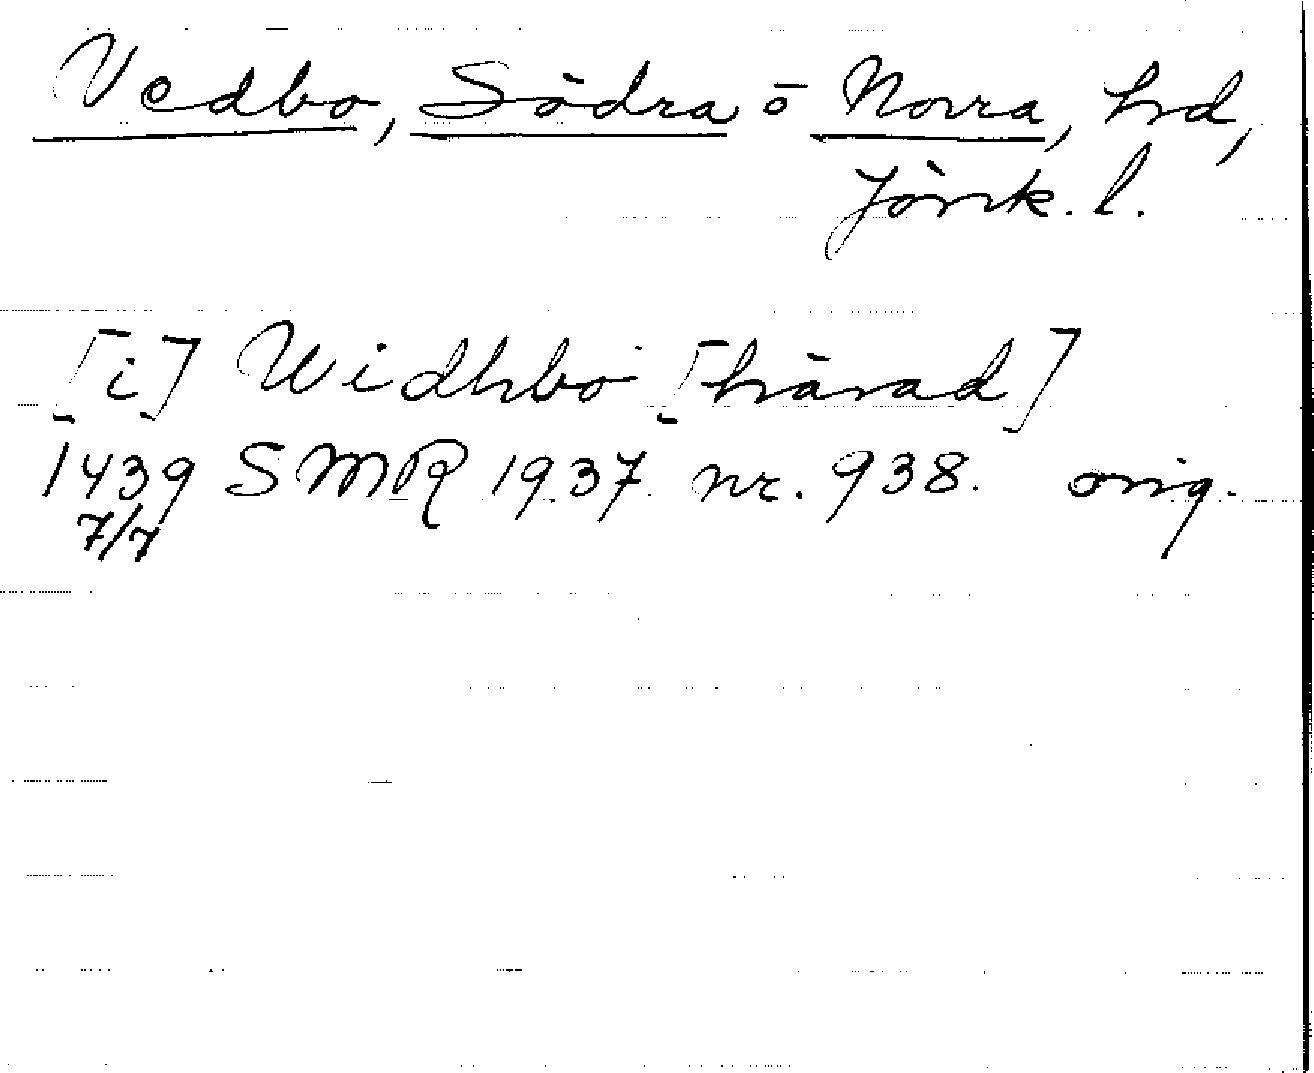 Vedbo, Södra o Norra, hd,
Jönk. l.
[i] Widhbo [härad]
1439 SMR 1937 nr. 938. orig.
7/7